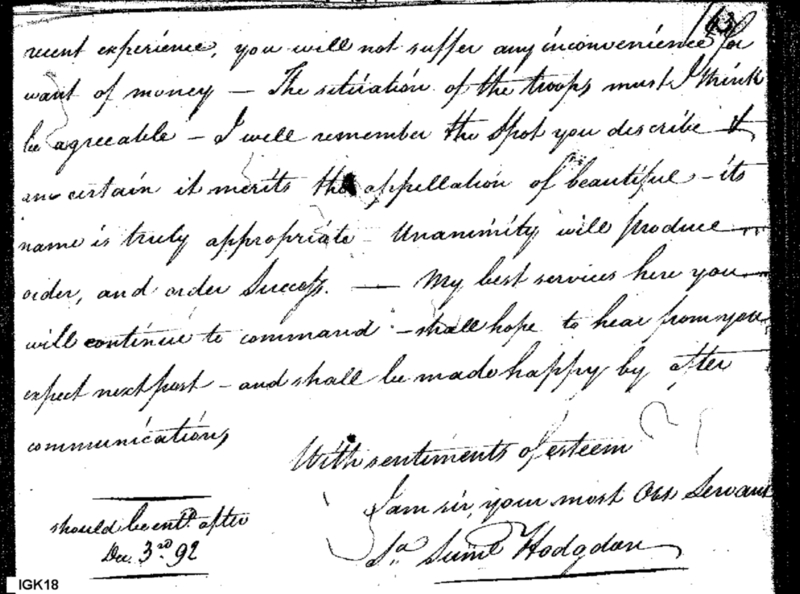 63
recent experience, you will not suffer any inconvenience for
want of money — The situation of the troops must I think
be agreeable — I will remember the Spot you describe &
am certain it merits the appellation of beautiful — its
name is truly appropriate — Unanimity will produce
order, and order Success. — My best services here you
will continue to command — shall hope to hear from you
expect next post — and shall be made happy by after
communications
With sentiments of esteem
I am sir, your most Obt Servant
Saml Hodgdon
should be entd. after
Dec 3rd. 92
IGK18